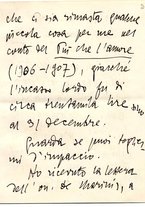 che ci sia rimasta qualche
piccola cosa per me nel
conto del Più che l'amore
(1906-1907), giacché
l'incasso lordo fu di
circa trentamila lire
al 31 decembre.
Guarda se puoi togliermi
l'impaccio.
Ho ricevuto la lettera
dell'on. de Marinis, a